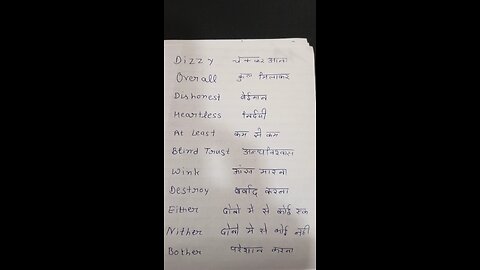 Dizzy चक्कर आना
Overall कुल मिलाकर
Dishonest बेईमान
Heartless निर्दयी
At Least कम से कम
Blind Trust अन्धविश्वास
Wink आँख मारना
Destroy बर्बाद करना
Either दोनो मे से कोई एक
Nither दोनो मे से कोई नही
Bother परेशान करना